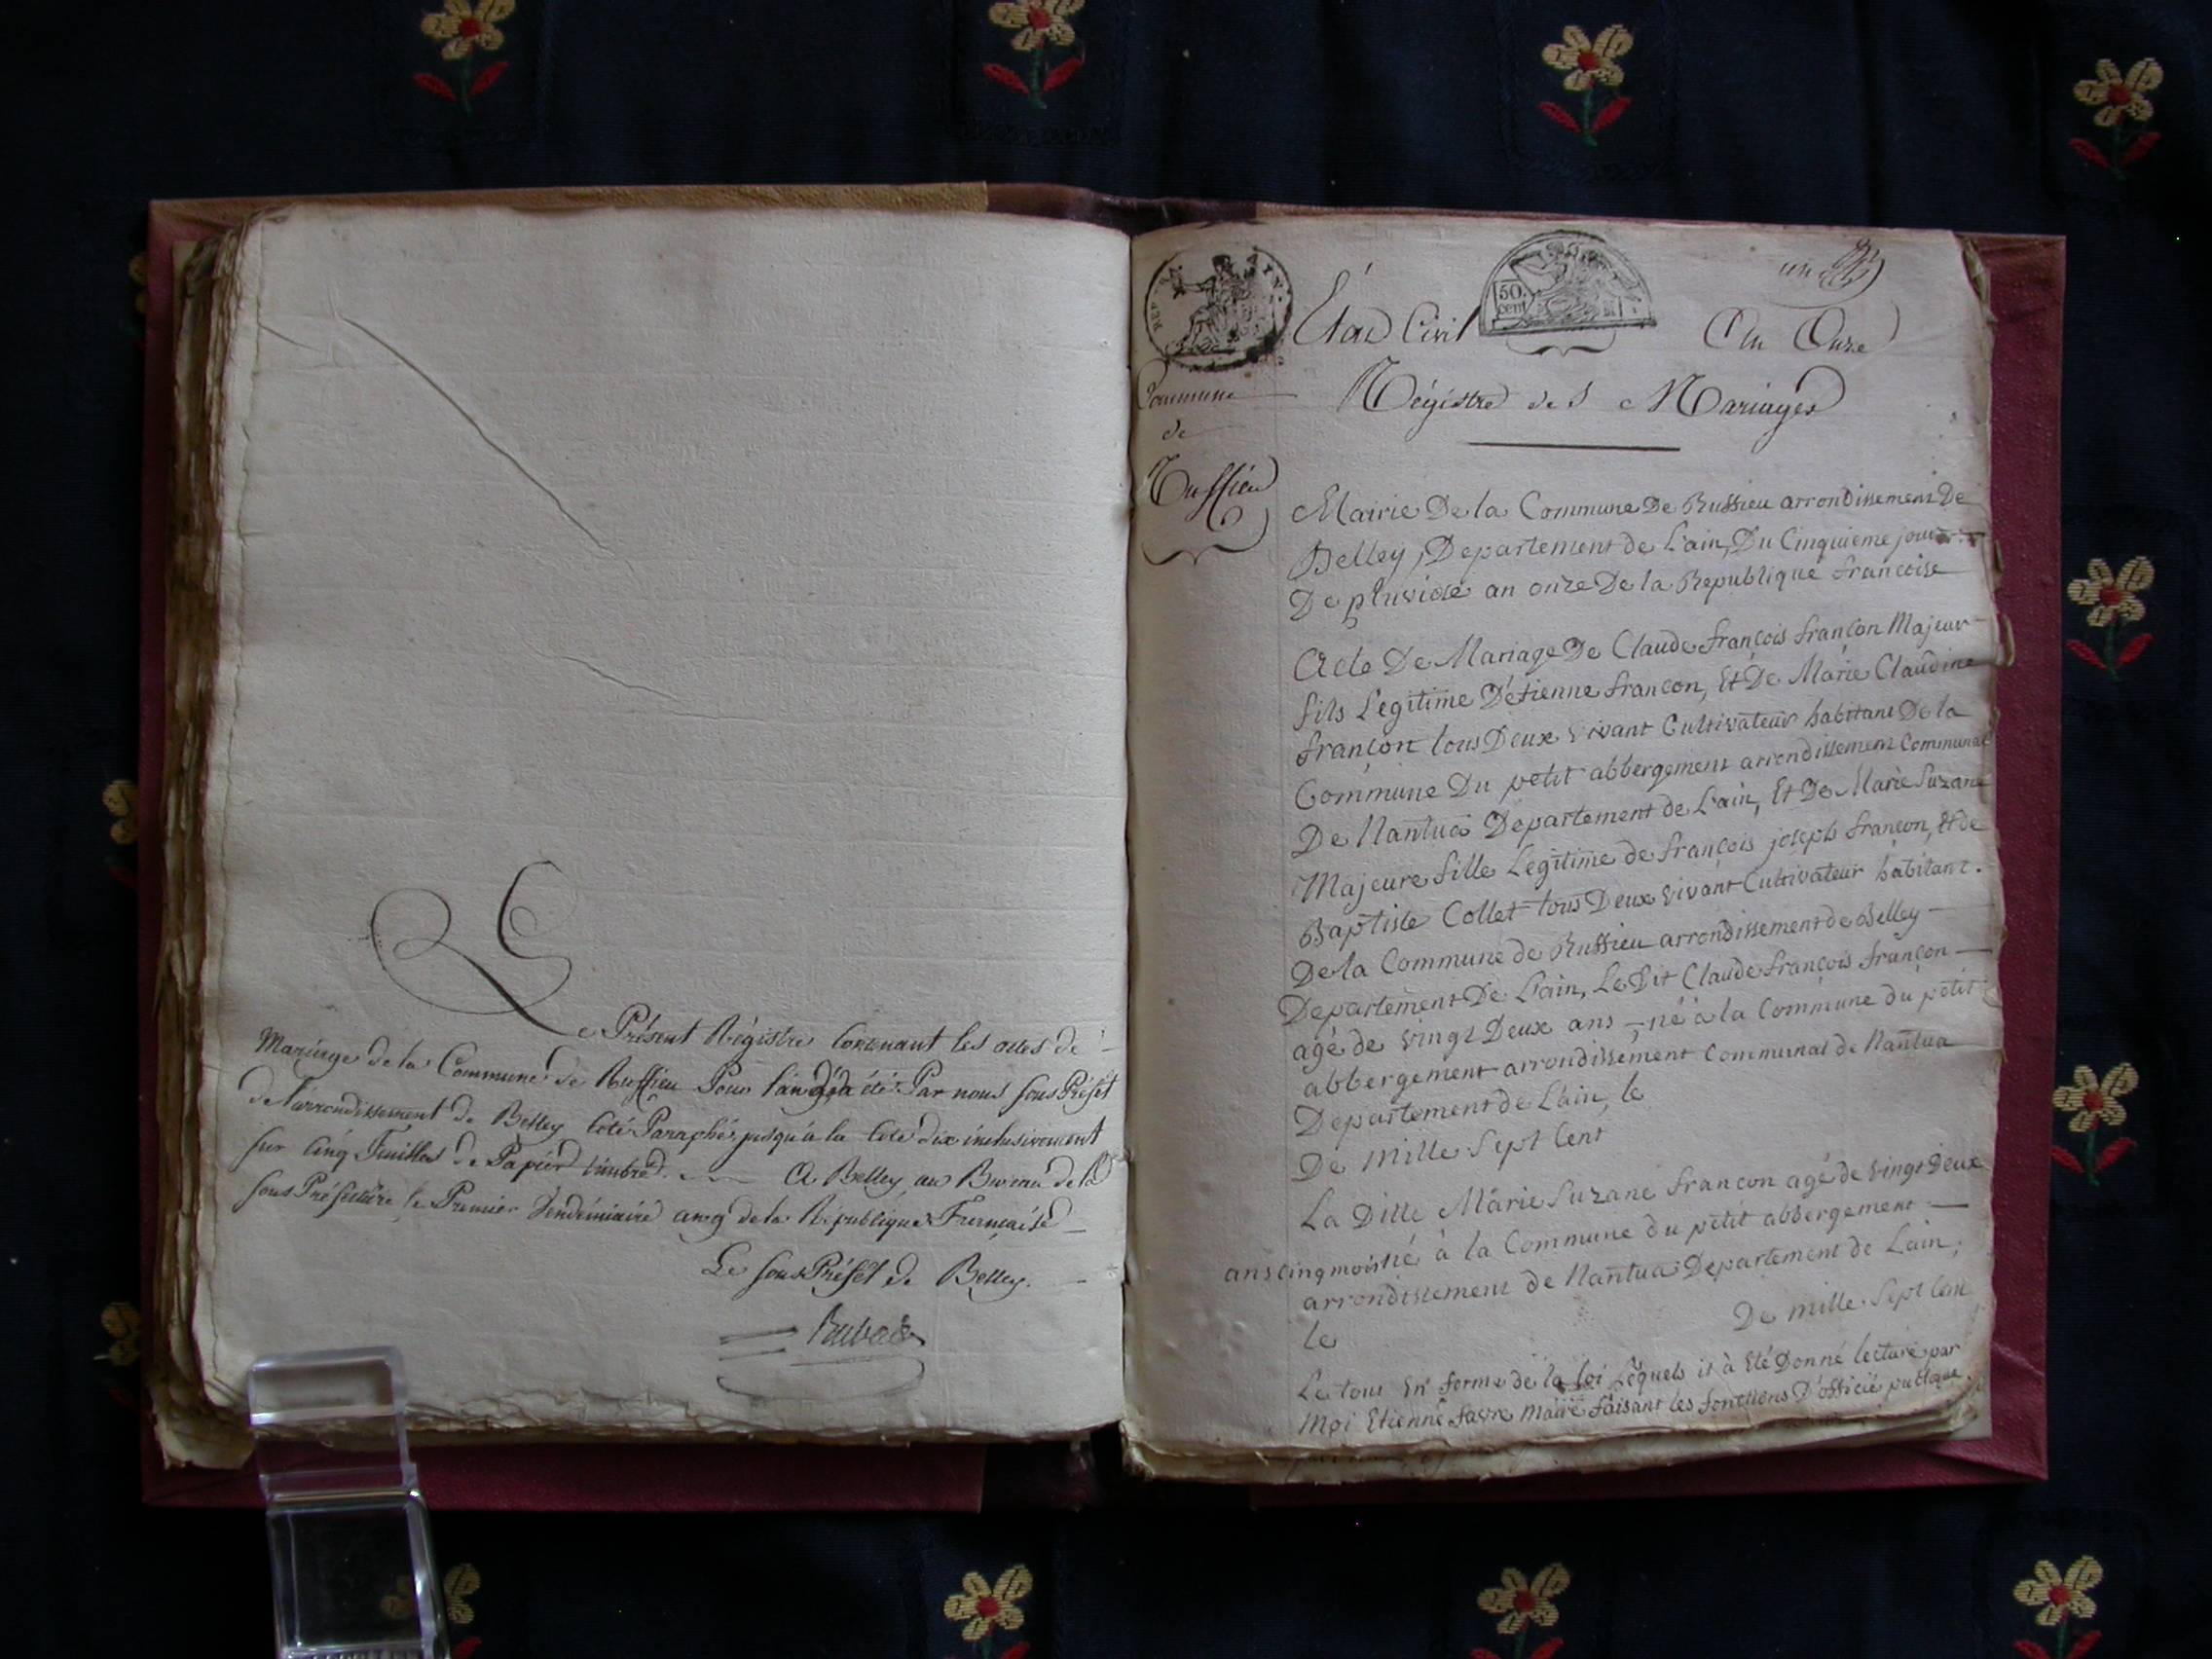 Le Présent Régistre Contenant les actes de
Mariage de la Commune de Ruffieu Pour l'an dix a été Par nous sous Préfet
de l'arrondissement de Belley Coté Paraphé jusqu'à la Cote dix inclusivement
sur Cinq Feuilles de Papier timbré. A Belley au Bureau de la
sous Préfecture le Premier Vendémiaire an 9 de la République Française
Le sous Préfet de Belley.
REP
50.
cent
un
État Civil An Onze
Régistre des Mariages
Commune
de
Ruffieu
Mairie De la Commune De Ruffieu arrondissement De
Belley, Departement de L'ain, Du Cinquieme jour
De pluviose an onze De la Republique françoise
Acte De Mariage De Claude françois françon Majeur
fils Legitime D'étienne francon, Et De Marie Claudine
françon tous Deux vivant Cultivateur habitant De la
Commune Du petit abbergement arrondissement Communal
De Nantua Departement de L'ain, Et De Marie Suzane
Majeure fille Legitime de françois joseph francon, Et de
Baptiste Collet tous Deux vivant Cultivateur habitant.
De la Commune de Ruffieu arrondissement de Belley
Departement De L'ain, Le Dit Claude françois françon
agé de vingt Deux ans né a la Commune du petit
abbergement arrondissement Communal de Nantua
Departement de L'ain, le
De Mille Sept Cent
La Ditte Marie Suzane francon agé de vingt Deux
ans cinq mois né à la Commune du petit abbergement
arrondissement de Nantua Departement de Lain;
le De mille Sept Cent
Le tout en forme de la loi Lequels it à Eté Donné lecture par
Moi Etienne favre Maire faisant les fonctions D'officié publique.